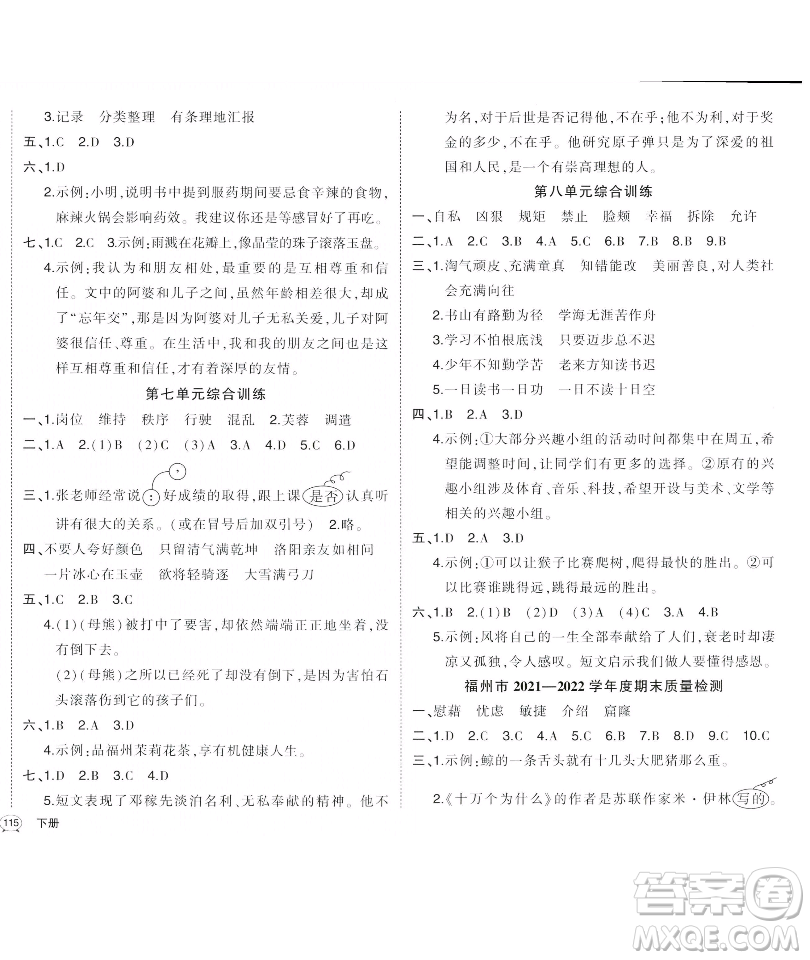 3.记录 分类整理 有条理地汇报
五、1.C 2.D 3.D
六、1.D
2.示例:小明,说明书中提到服药期间要忌食辛辣的食物,
麻辣火锅会影响药效。我建议你康复后再吃。
七、1.C 2.B 3.D 示例:雨溅在花瓣上,像晶莹的珠子滚落玉盘。
4.示例:我认为和朋友相处,最重要的是互相尊重和信
任。文中的阿婆和儿子之间,虽然年龄相差很大,却成
了“忘年交”,那是因为阿婆对儿子无私关爱,儿子对阿
婆很信任、尊重。在生活中,我和我的朋友之间也互相
尊重和信任,因此有着深厚的友情。
第七单元综合训练
一、1.岗位 维持 秩序 行驶 混乱 2.芙蓉 调遣
二、1.A 2.(1)B (2)C (3)A 3.D 4.D 5.C 6.D
三、1.张老师经常说:好成绩的取得,跟上课是否认真听
讲有很大的关系。(或在冒号后加双引号) 2.略。
四、不要人夸好颜色 只留清气满乾坤 洛阳亲友如相问
一片冰心在玉壶 欲将轻骑逐 大雪满弓刀
五、1.C 2.B 3.C
4.(1)(母熊)被打中了要害,却依然端端正正地坐着,没
有倒下去。
(2)(母熊)之所以已经死了却没有倒下,是因为害怕石
头滚落伤到它的孩子们。
六、1.C 2.A 3.D
4.示例:品福州茉莉花茶,享有机健康人生。
七、1.D 2.B 3.C 4.D
5.短文表现了邓稼先淡泊名利、无私奉献的精神。他不
115 下册
为名,对于后世是否记得他,不在乎;他不为利,对于奖
金的多少,不在乎。他研究原子弹只是为了深爱的祖
国和人民,是一个有崇高理想的人。
第八单元综合训练
一、自私 凶狠 规矩 禁止 脸颊 幸福 拆除 允许
二、1.A 2.A 3.B 4.C 5.B 6.D 7.A 8.D 9.B
三、1.淘气顽皮、充满童真 知错能改 美丽善良,对人类社
会充满向往
2.书山有路勤为径 学海无涯苦作舟
3.学习不怕根底浅 只要迈步总不迟
4.少年不知勤学苦 老来方知读书迟
5.一日读书一日功 一日不读十日空
四、1.B 2.A 3.D
4.示例:①大部分兴趣小组的活动时间在周五,希
望能调整时间,让同学们有更多的选择。②现有的兴
趣小组涉及体育、音乐、科技,希望开设与美术、文学等
有关的兴趣小组。
五、1.D 2.C 3.D
4.示例:①可以让猴子比赛爬树,爬得最快的胜出。②可
以比赛谁跳得远,跳得最远的胜出。
六、1.B 2.(1)C (2)D 3.A
4.示例:风将自己的一生全部奉献给了人们,衰老时却凄
凉又孤独,令人感叹。短文启示我们做人要懂得感恩。
福州市 2021—2022 学年度期末质量检测
一、慰藉 忧虑 敏捷 介绍 窟窿
二、1.D 2.C 3.D 4.B 5.C 6.A 7.C 8.D 9.D 10.C
三、1.示例:鲸的一条舌头就有十几头大肥猪那么重。
2.《十万个为什么》的作者是苏联作家米·伊林写的。
答案卷
MMXDAJ.COM